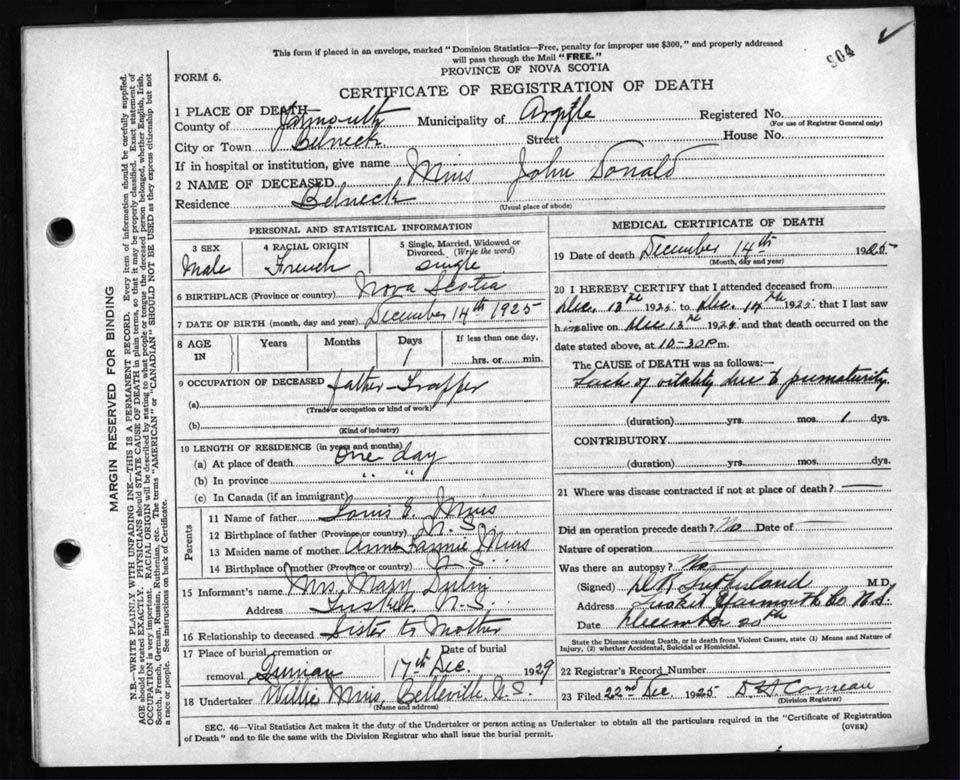 This form if placed in an envelope, marked "Dominion Statistics—Free, penalty for improper use $300," and properly addressed
will pass through the Mail "FREE."
904
PROVINCE OF NOVA SCOTIA
FORM 6.
CERTIFICATE OF REGISTRATION OF DEATH
1 PLACE OF DEATH—
County of Yarmouth Municipality of Argyle Registered No.
(For use of Registrar General only)
City or Town Belneck Street House No.
If in hospital or institution, give name
2 NAME OF DECEASED Mius John Donald
Residence Belneck
(Usual place of abode)
PERSONAL AND STATISTICAL INFORMATION
3 SEX 4 RACIAL ORIGIN 5 Single, Married, Widowed or
Divorced. (Write the word)
Male French Single
6 BIRTHPLACE (Province or country) Nova Scotia
7 DATE OF BIRTH (month, day and year) December 14th 1925
8 AGE IN Years Months Days If less than one day,
1 hrs. or min.
9 OCCUPATION OF DECEASED father—Trapper
(a)
(Trade or occupation or kind of work)
(b)
(Kind of industry)
10 LENGTH OF RESIDENCE (in years and months)
(a) At place of death One day
(b) In province " "
(c) In Canada (if an immigrant)
Parents
11 Name of father Louis E. Mius
12 Birthplace of father (Province or country) N.S.
13 Maiden name of mother Anne Mius
14 Birthplace of mother (Province or country) N.S.
15 Informant's name Mrs Mary
Address Tusket N.S.
16 Relationship to deceased Sister to Mother
17 Place of burial, cremation or Date of burial
removal Quinan 17th Dec. 1929
18 Undertaker Willie Mius, Belleville N.S.
(Name and address)
MEDICAL CERTIFICATE OF DEATH
19 Date of death December 14th 1925
(Month, day and year)
20 I HEREBY CERTIFY that I attended deceased from
Dec. 13 192 to Dec. 192 that I last saw
h alive on Dec 13 192 and that death occurred on
date stated above, at 10-30 P m.
The CAUSE OF DEATH was as follows:—
Lack of vitality due to prematurity.
(duration) yrs. mos. 1 dys.
CONTRIBUTORY
(duration) yrs. mos. dys.
21 Where was disease contracted if not at place of death?
Did an operation precede death? No Date of
Nature of operation
Was there an autopsy? No
(Signed) Sutherland M.D.
Address Tusket Yarmouth Co N.S.
Date December 20th
State the Disease causing Death, or in death from Violent Causes, state (1) Means and Nature of
Injury, (2) whether Accidental, Suicidal or Homicidal.
22 Registrar's Record Number
23 Filed 22nd Dec. 1925 Comeau
(Division Registrar)
SEC. 46—Vital Statistics Act makes it the duty of the Undertaker or person acting as Undertaker to obtain all the particulars required in the "Certificate of Registration
of Death" and to file the same with the Division Registrar who shall issue the burial permit.
(OVER)
MARGIN RESERVED FOR BINDING
N.B.—WRITE PLAINLY WITH UNFADING INK—THIS IS A PERMANENT RECORD. Every item of information should be carefully supplied.
AGE should be stated EXACTLY. PHYSICIANS should STATE CAUSE OF DEATH in plain terms, so that it may be properly classified. Exact statement of
OCCUPATION is very important. RACIAL ORIGIN will be described by stating to what people or tongue the deceased person belonged, whether English, Irish,
Scotch, French, German, Russian, Ruthenian, etc. The terms "AMERICAN" or "CANADIAN" SHOULD NOT BE USED as they express citizenship but not
a race or people. See instructions on back of Certificate.